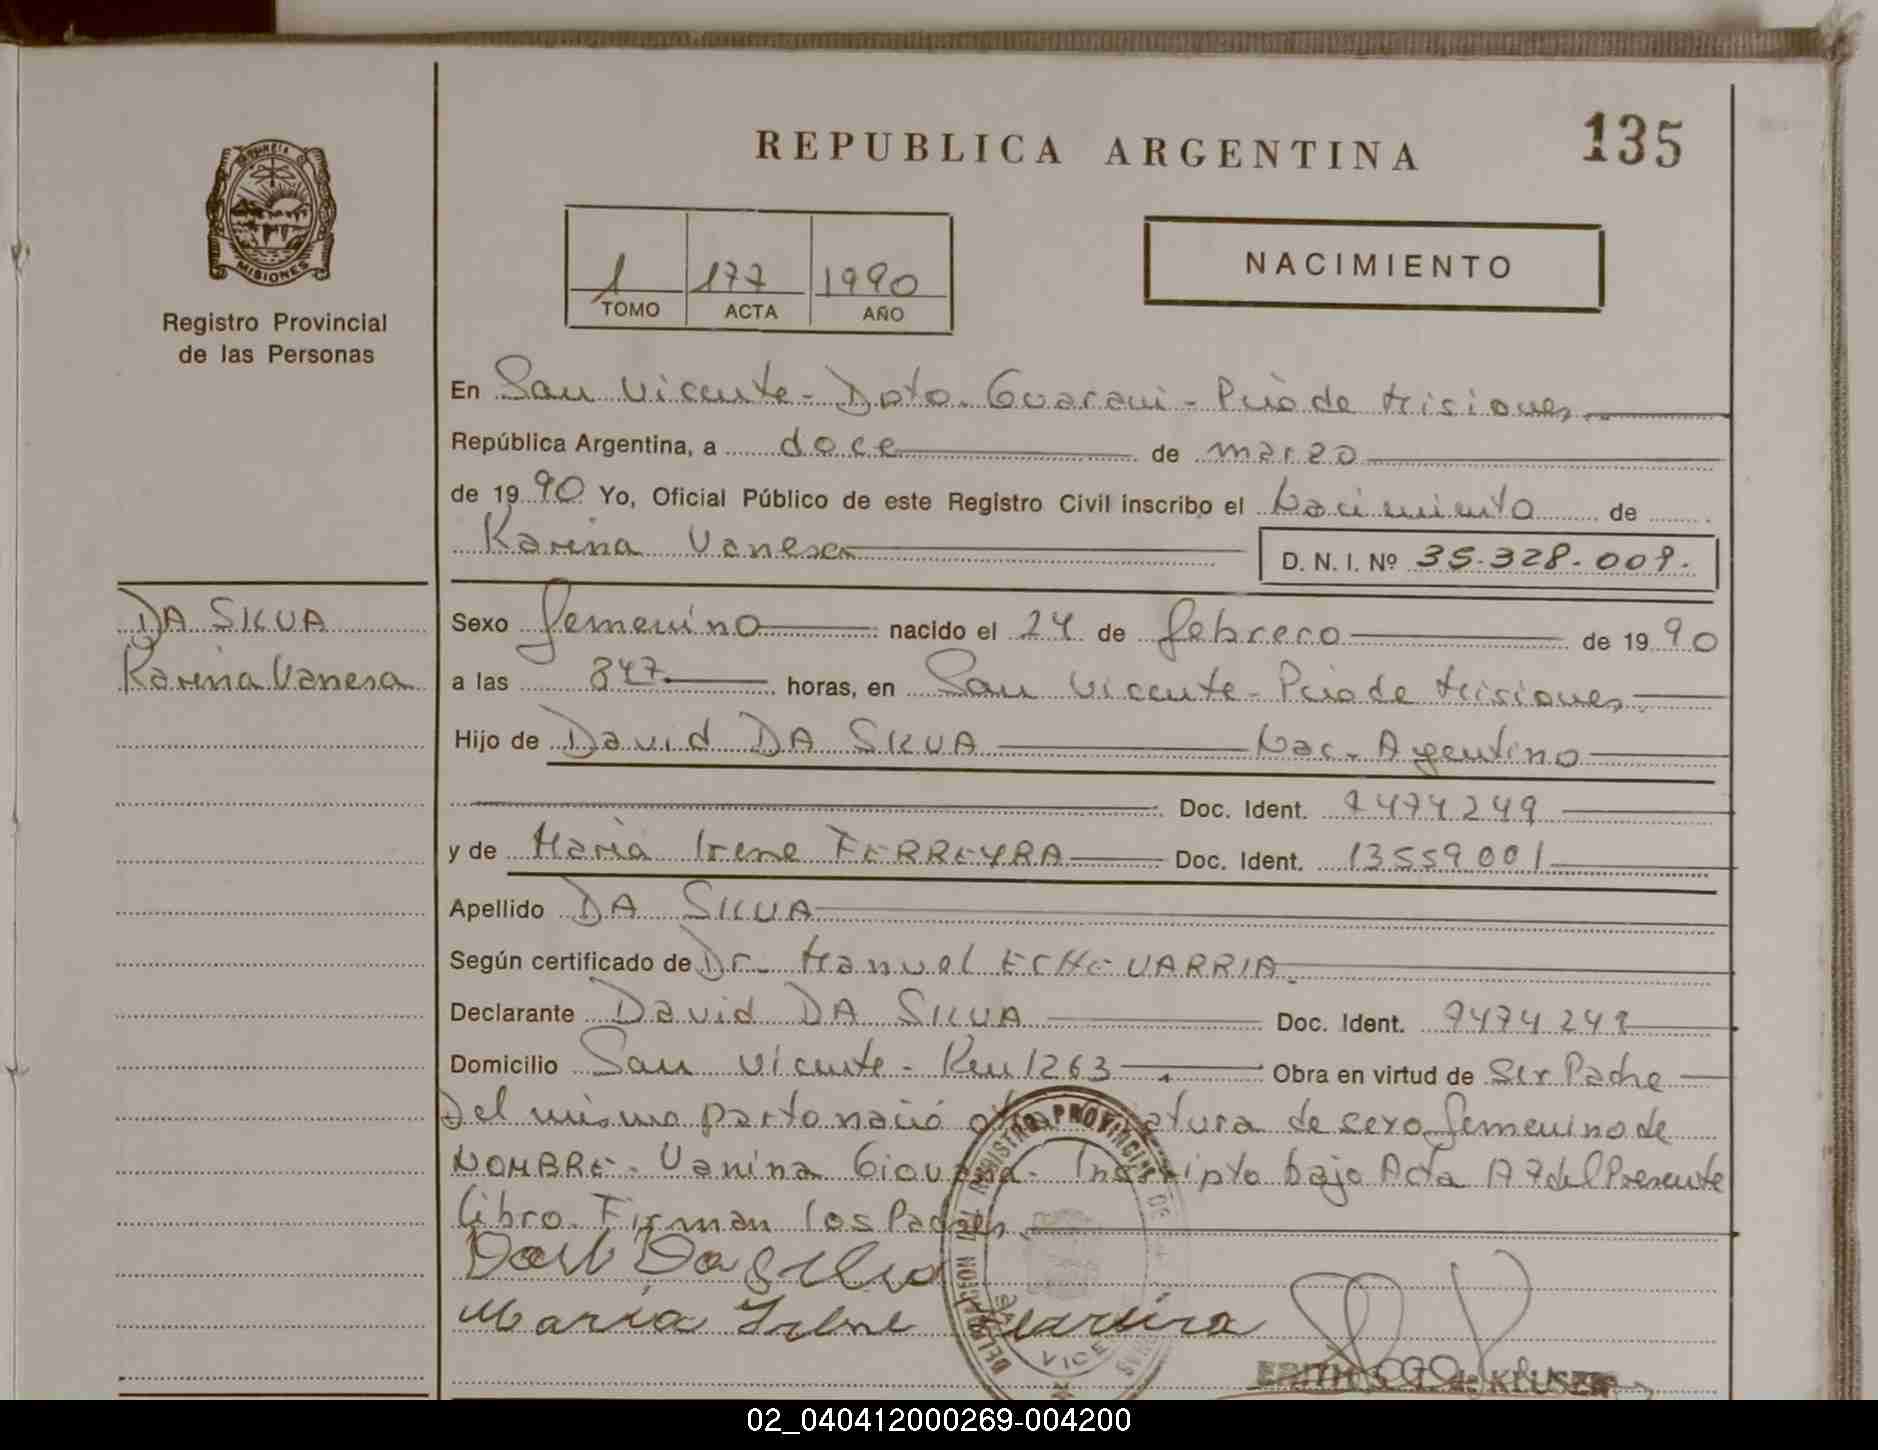 135
REPUBLICA ARGENTINA
PROVINCIA DE MISIONES
Registro Provincial
de las Personas
1 177 1990
TOMO ACTA AÑO
NACIMIENTO
En San Vicente - Dpto. Guarani - Pcia de Misiones
República Argentina, a doce de marzo
de 1990 Yo, Oficial Público de este Registro Civil inscribo el Nacimiento de
Karina Vanesa D. N. I. Nº 35.328.009.
DA SILVA
Karina Vanesa
Sexo femenino nacido el 24 de febrero de 1990
a las 847 horas, en San Vicente - Pcia de Misiones.
Hijo de David DA SILVA Nac. Argentino
Doc. Ident. 7474249
y de Maria Irene FERREYRA Doc. Ident. 13559001
Apellido DA SILVA
Según certificado de Dr. Manuel ECHEVARRIA
Declarante David DA SILVA Doc. Ident. 7474249
Domicilio San Vicente - Km 1263 Obra en virtud de Ser Padre
Del mismo parto nació otra criatura de sexo femenino de
NOMBRE - Vanina Giovana - Inscripto bajo Acta 17 del Presente
libro. Firman los Padres
Maria Irene Ferreira
DELEGACION DEL REGISTRO PROVINCIAL DE
VICE
EDITH S. KLUSER
02_040412000269-004200